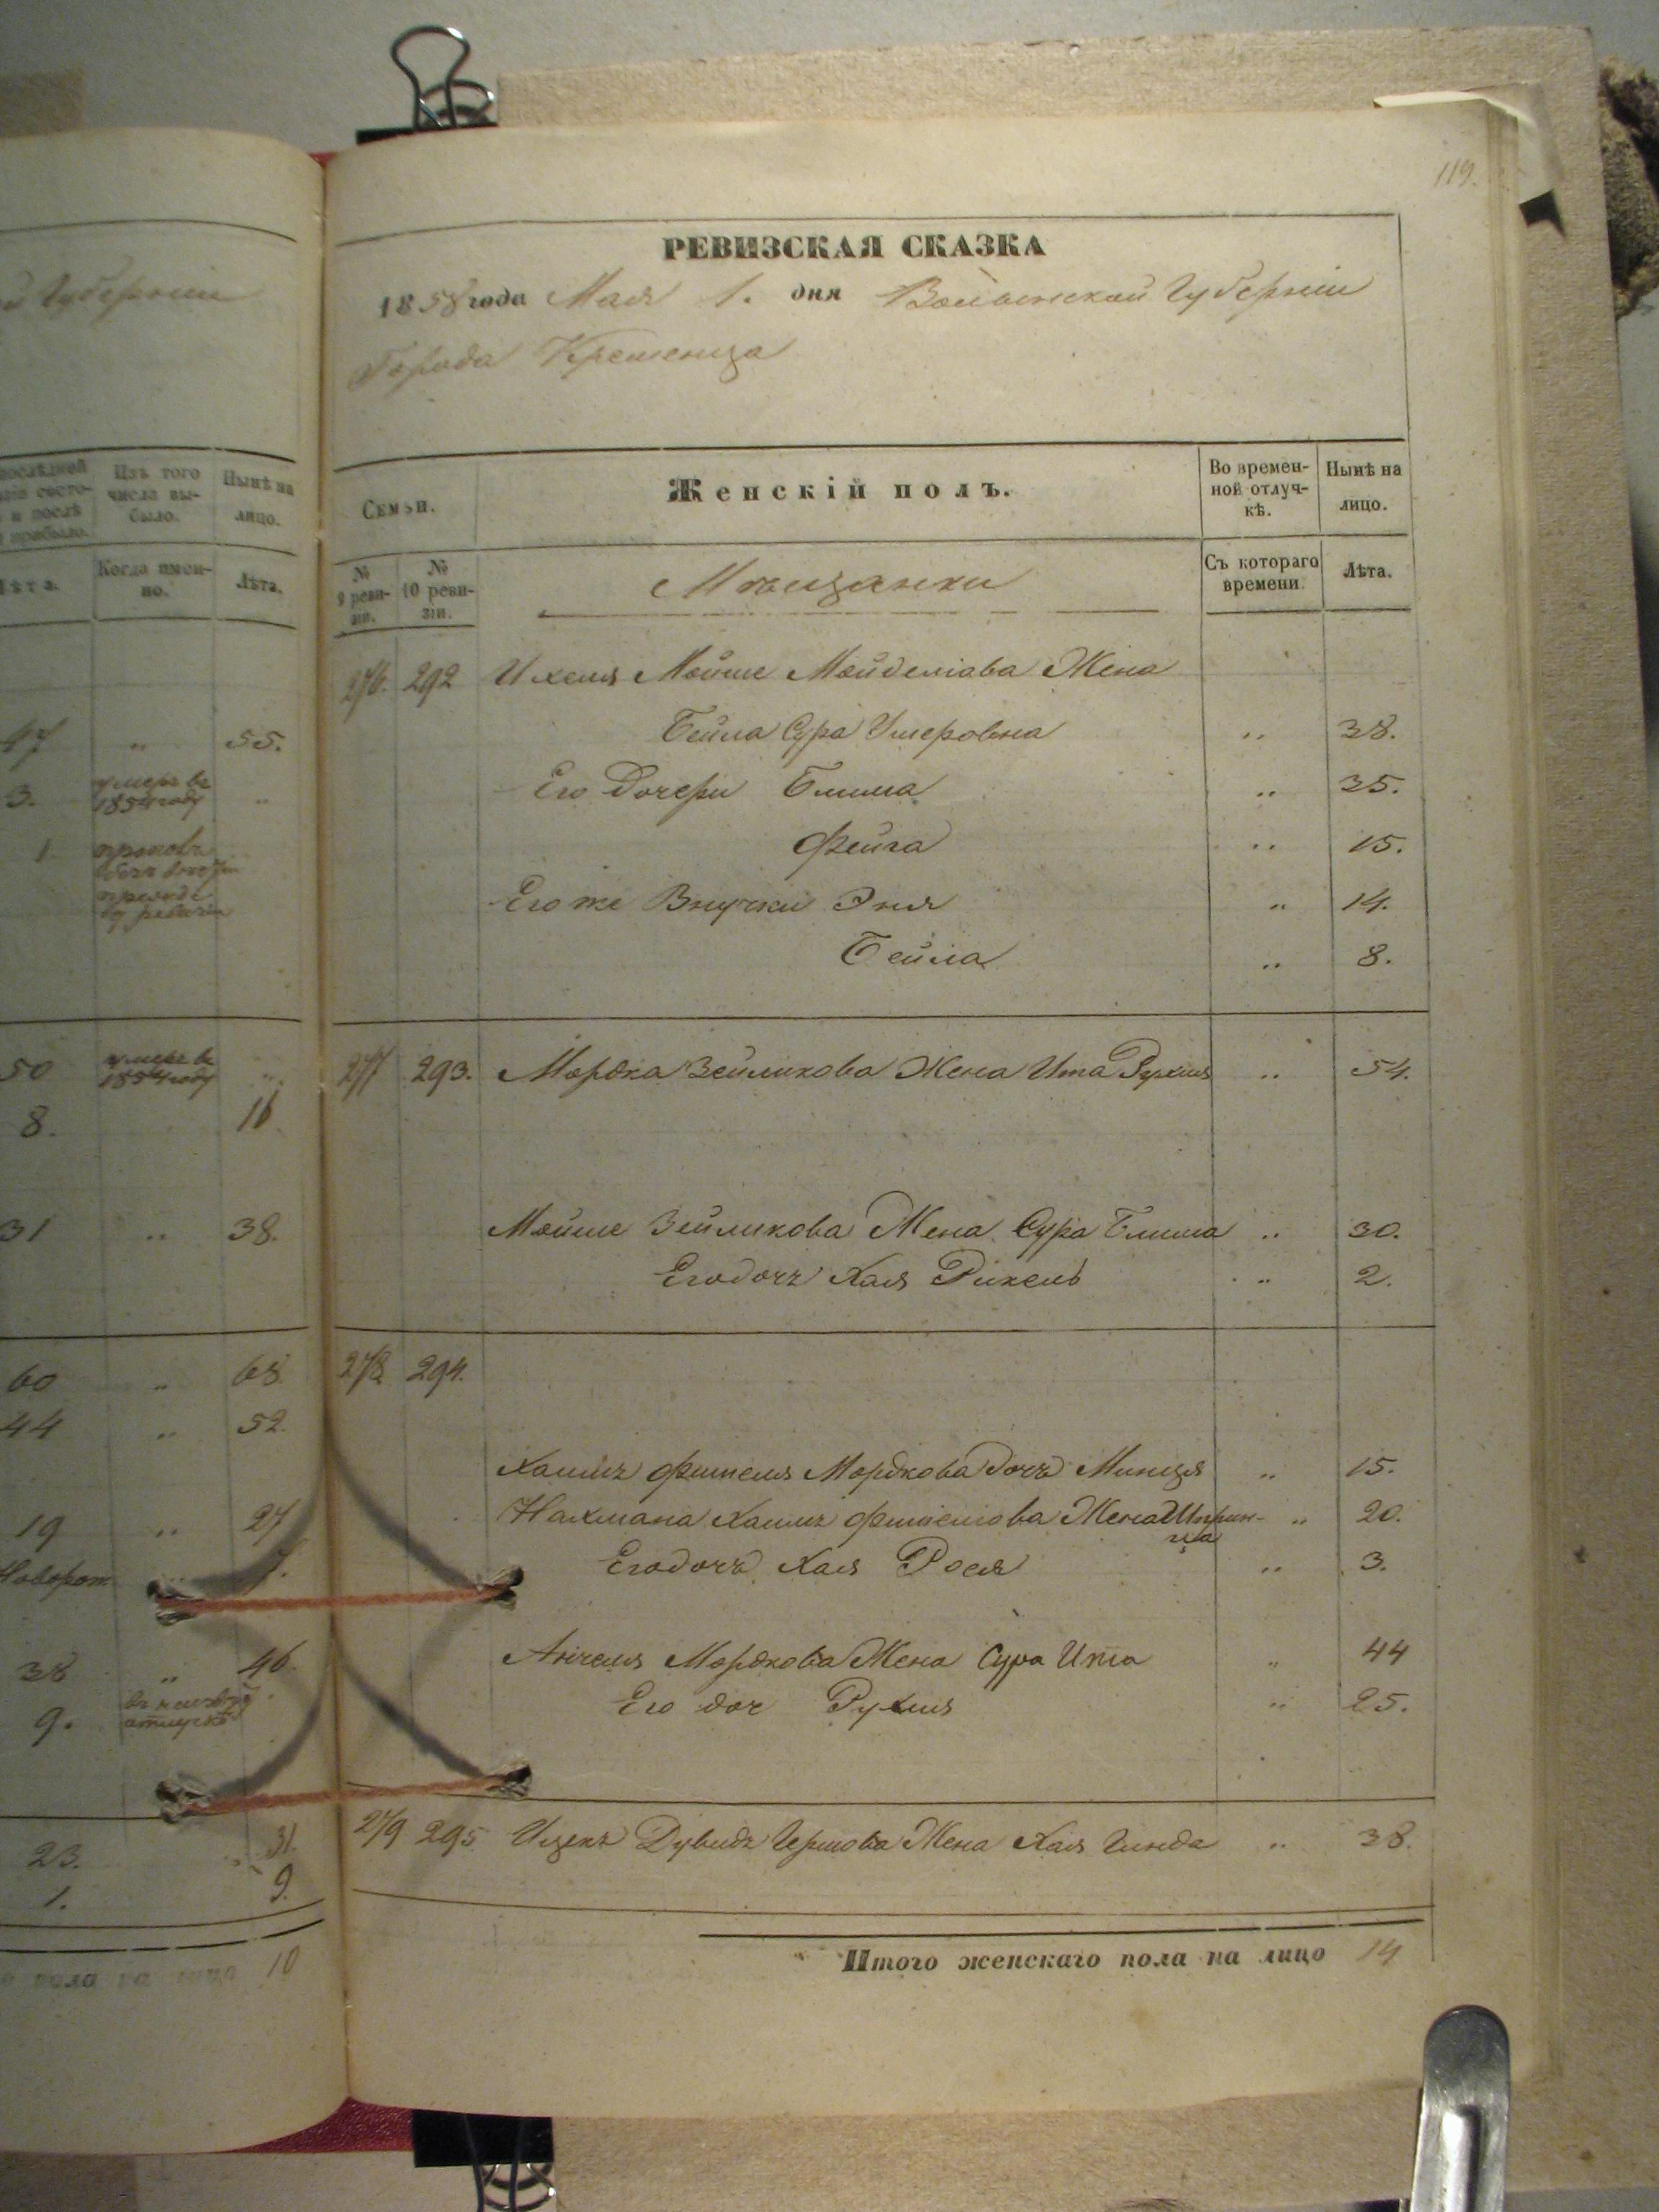 119.
РЕВИЗСКАЯ СКАЗКА
1858 года Мая 1. дня Волынской Губерніи
Города Кременца
й Губерніи
Семьи.
Женскій полъ.
Во времен-
ной отлуч-
кѣ.
Нынѣ на
лицо.
№
9 реви-
зіи.
№
10 реви-
зіи.
Мѣщанки
Съ котораго
времени.
Лѣта.
276. 292 Ихеля Мойше Мойделіова Жена
Бейла Сура Умеровна „ 38.
Его Дочери Блима „ 25.
Фейга „ 15.
Его же Внучки Эня „ 14.
Бейла „ 8.
277 293. Мордка Зейликова Жена Ита Рухля „ 54.
Мойше Зейликова Жена Сура Блима „ 30.
Его дочь Хая Рикель „ 2.
278 294.
Хаимъ Фишеля Мордкова дочь Минця „ 15.
Нахмана Хаимъ Фишелева Жена Шприн- „ 20.
ца
Его дочь Хая Рося „ 3.
Анчеля Мордкова Жена Сура Ита „ 44
Его доч Рухля „ 25.
279 295 Ицекъ Дувидъ Гершова Жена Хая Гинда „ 38.
Итого женскаго пола на лицо 14
послѣдней
и послѣ
прибыло.
Изъ того
числа вы-
было.
Нынѣ на
лицо.
Лѣта.
Когда имен-
но.
Лѣта.
47 „ 55.
3. умеръ въ
1854 году „
1
50 умеръ въ
1854 году „
8. 16
31 „ 38.
60 „ 68
44 „ 52.
19 „ 27
Новорож
38 „ 46.
9.
23. 31.
1. 9.
пола на лицо 10